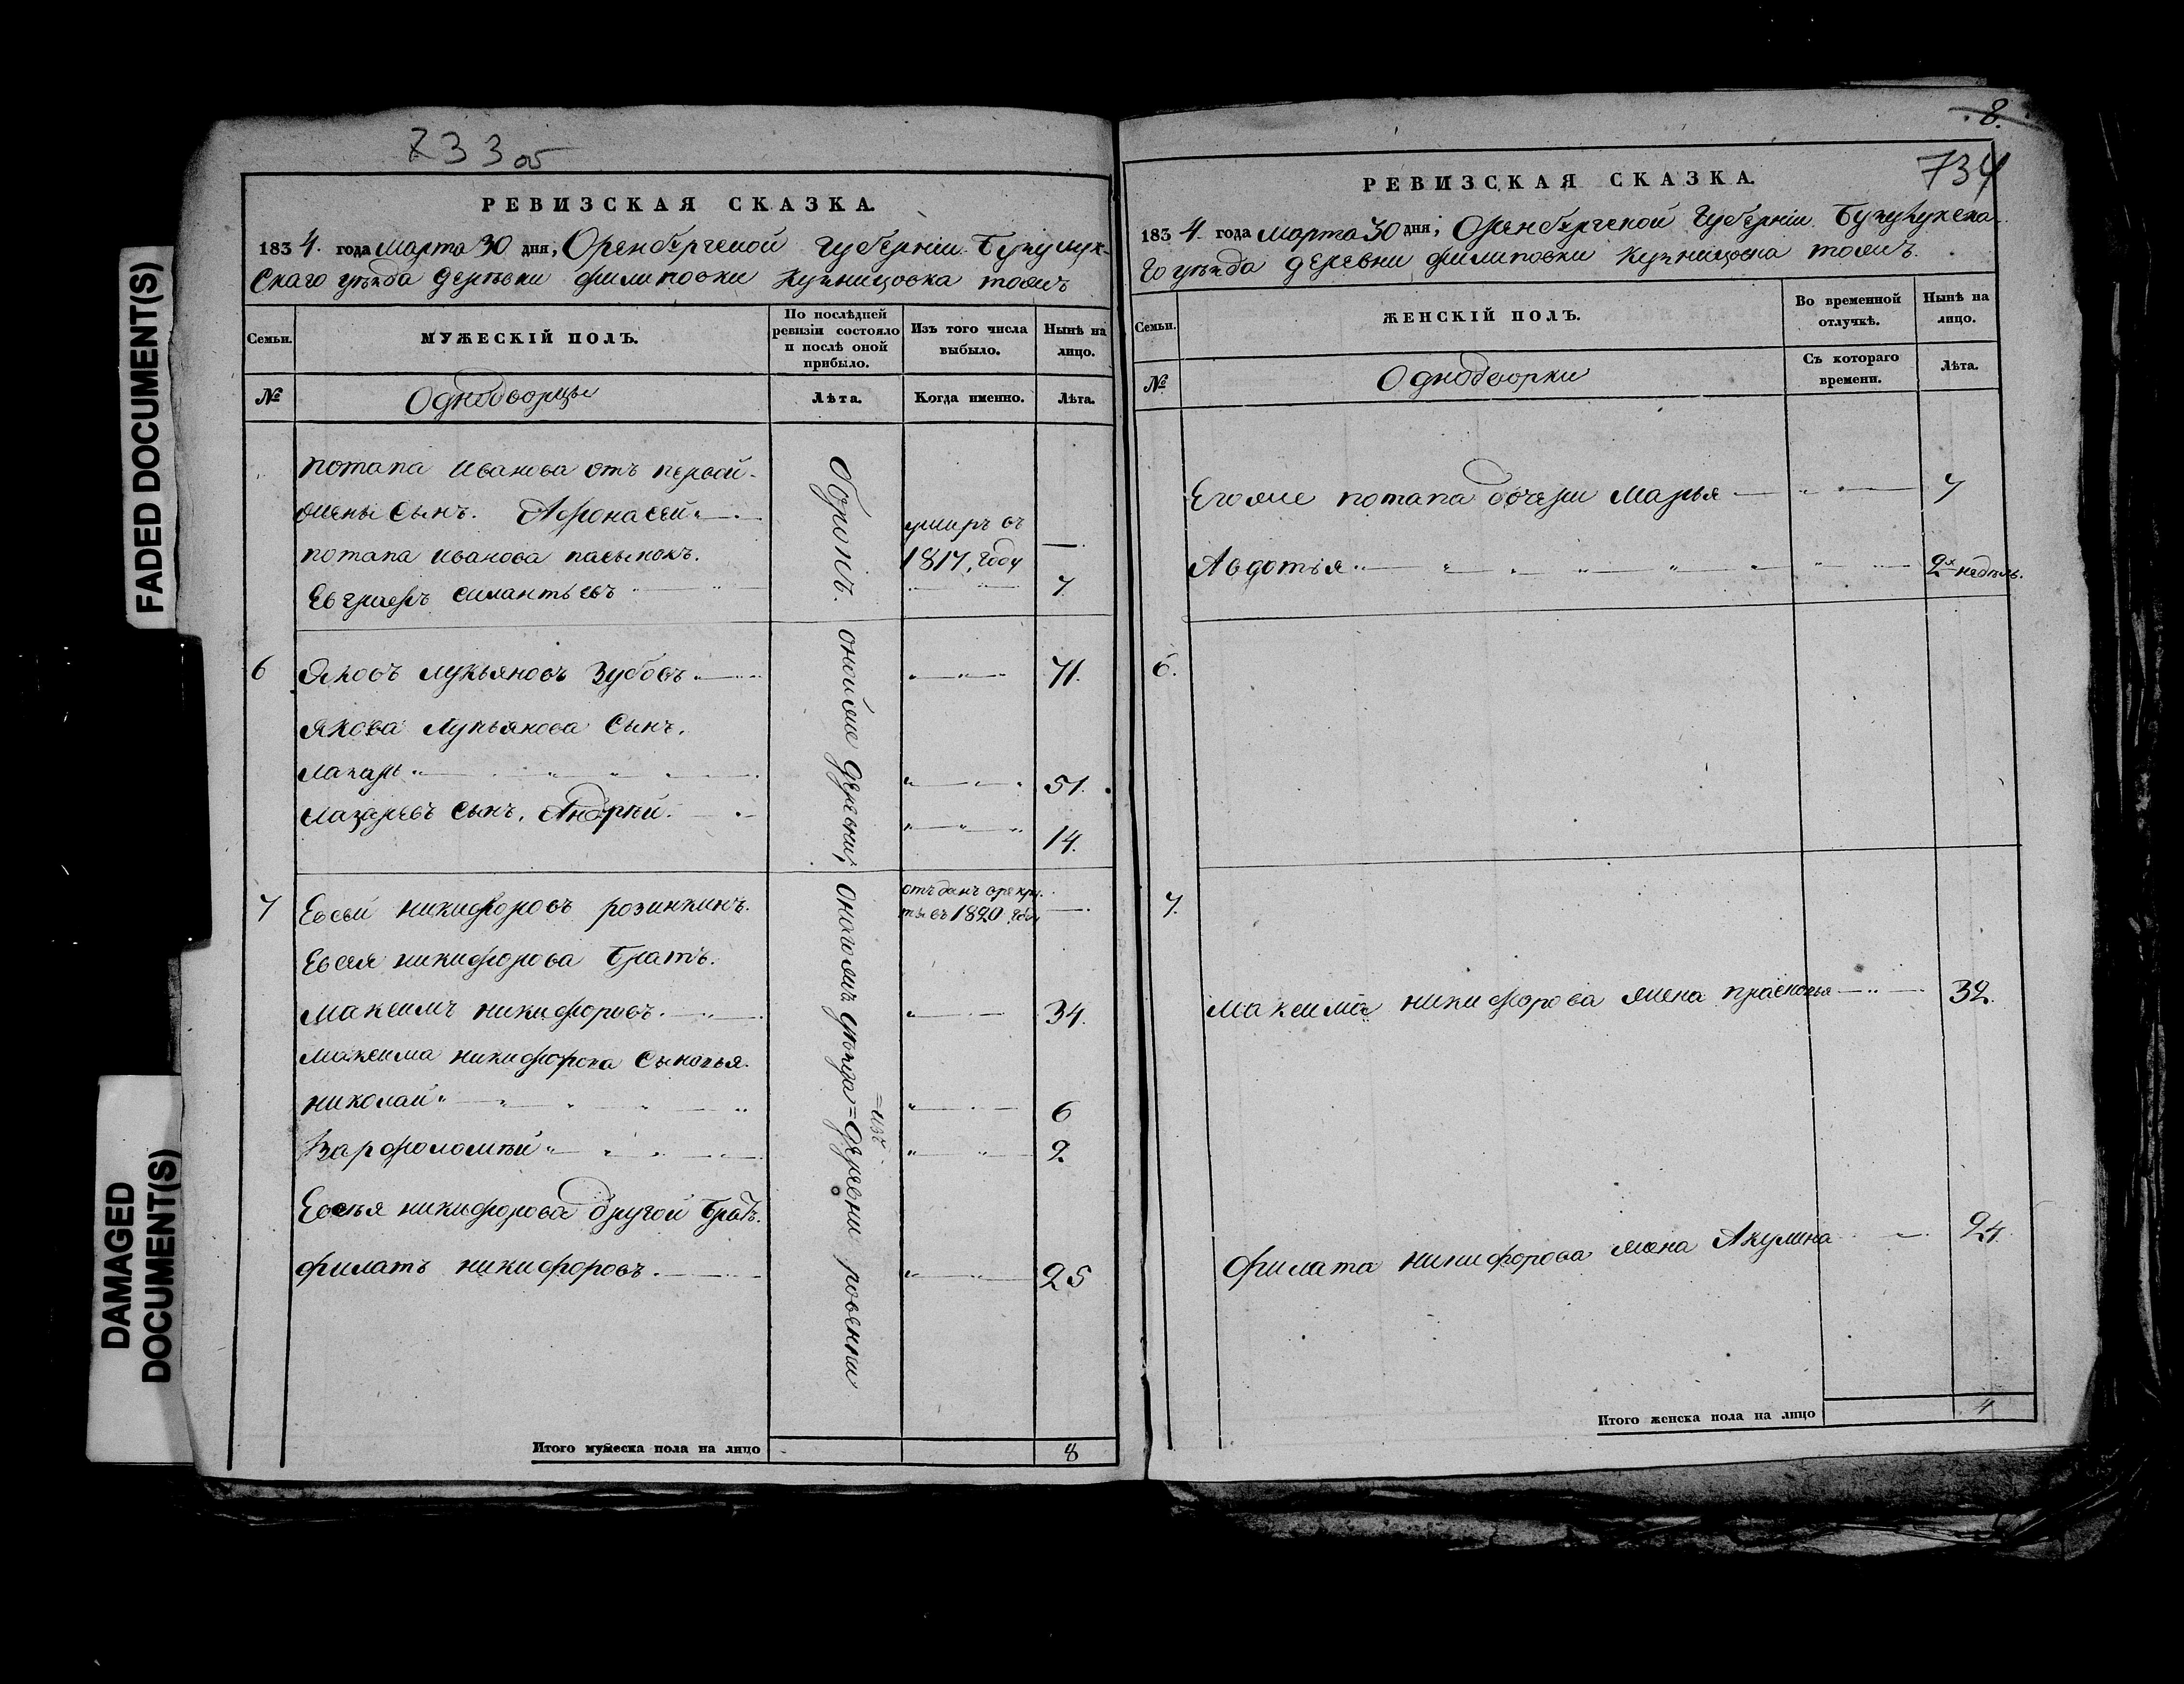 FADED DOCUMENT(S)
DAMAGED
DOCUMENT(S)
733 об
РЕВИЗСКАЯ СКАЗКА.
1834. года марта 30 дня, Оренбургской губерніи
Скаго уѣзда деревни филиповки тожъ
Семьи.
МУЖЕСКІЙ ПОЛЪ.
По послѣдней ревизіи состояло и послѣ оной прибыло.
Изъ того числа выбыло.
Нынѣ на лицо.
№
Однодворцы
Лѣта.
Когда именно.
Лѣта.
потапа иванова отъ первой
жены Сынъ. Афонасей
умиръ въ
1817. году —
потапа иванова пасынокъ.
Евграфъ силантьевъ 7.
6 Яковъ лукьяновъ Зубовъ 71.
Якова Лукьянова Сынъ.
лазарь 51.
лазаревъ Сынъ. Андрѣй 14.
7 Евсѣй никифоровъ розинкинъ.
отъданъ врекру.
ты въ 1820. году —
Евсея никифорова Братъ.
максимъ никифоровъ. 34.
максима никифорова Сыновья.
николай 6
Варфоломѣй 2.
Евсѣя никифорова другой братъ.
филатъ никифоровъ. 25
онойже деревни,
оногожъ уѣзда = деревни
= изъ
Итого мужеска пола на лицо 8
8.
734
РЕВИЗСКАЯ СКАЗКА.
1834. года марта 30 дня, Оренбургской Губерніи
го уѣзда деревни филиповки тожъ.
Семьи.
ЖЕНСКІЙ ПОЛЪ.
Во временной отлучкѣ.
Нынѣ на лицо.
№
Однодворки
Съ котораго времени.
Лѣта.
Егоже потапа дочери Марья 7
Авдотья 2х недѣль.
6.
7.
максима никифорова жена прасковья 32.
Филата никифорова жена Акулина 24.
Итого женска пола на лицо 4